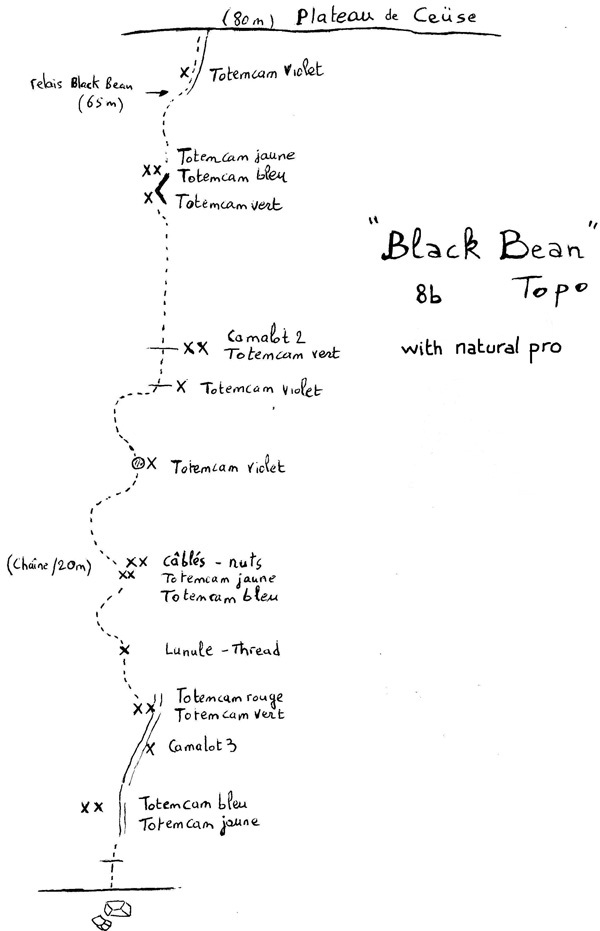 (80m) Plateau de Ceüse
Totemcam violet
relais Black Bean
(65m)
Totemcam jaune
Totemcam bleu
Totemcam vert
"Black Bean"
8b Topo
with natural pro
Camalot 2
Totemcam vert
Totemcam violet
Totemcam violet
(Chaîne/20m)
câblés - nuts
Totemcam jaune
Totemcam bleu
Lunule - Thread
Totemcam rouge
Totemcam vert
Camalot 3
Totemcam bleu
Totemcam jaune